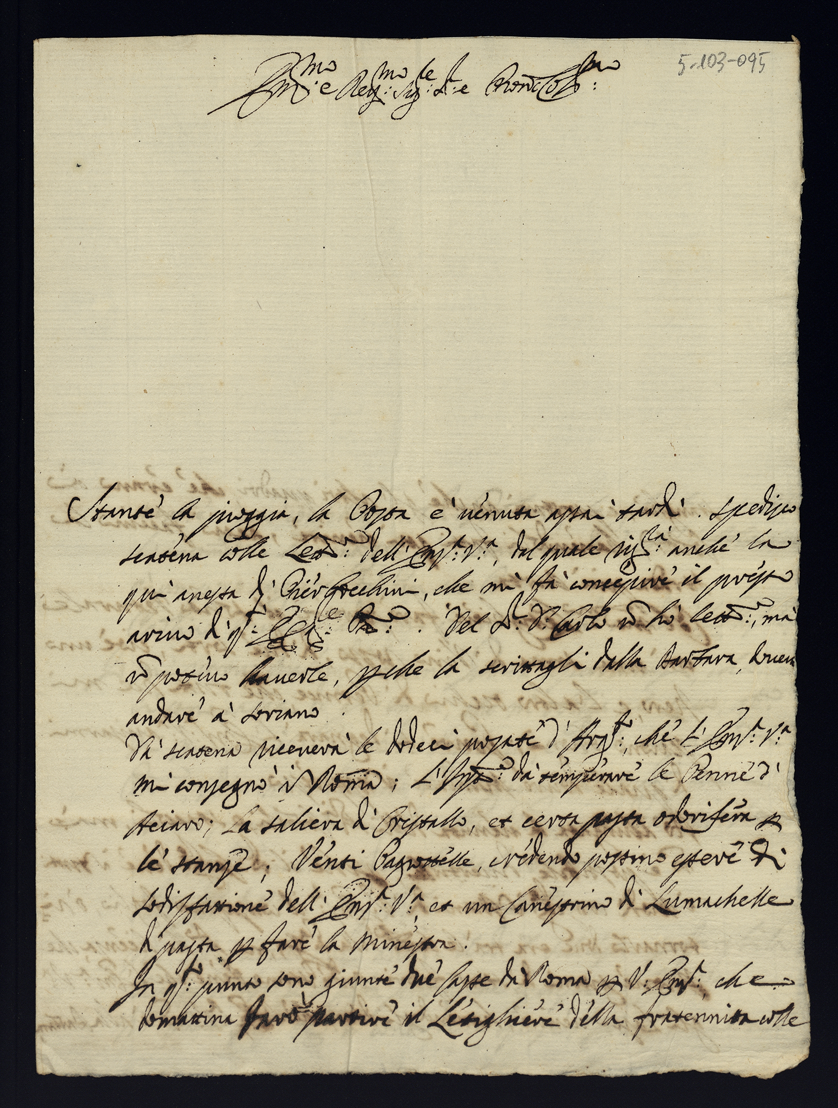 5-103-095
Em.mo e Re.mo Sig.re Sig.re e Pron Col.mo
Stante la pioggia, la Posta è venuta assai tardi. spedisco
scatena colle Lett.re dell'Em.za V.ra, dal quale anche la
qui anessa di Pier Cecchini, che mi fà concepire il presto
arivo di q.to . Del S.r D. Carlo nō hò lett.re, mà
nō potevo haverle, p che la scrissagli dalla Barbara, dovea
andare à Soriano.
Dà scatena riceverà le dodeci posate d'Arg.to, che l'Em.za V.ra
mi consegnò ī Roma; da temperare le Penne d'
Aciaro; La saliera di Cristallo, et certa pasta odorifera p
le stanze; Venti Pagnottelle, credendo possino essere di
sodisfatione dell'Em.za V.ra et un Canestrino di Lumachelle
di pasta p fare la minestra.
In q.to punto sono giunte due casse dà Roma p V. Em.za, che
domattina farò partire il Letighiere della fraternita colle